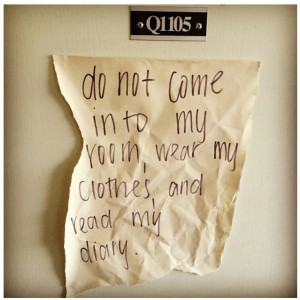 Q1105
do not come
into my
room, wear my
clothes, and
read my
diary.